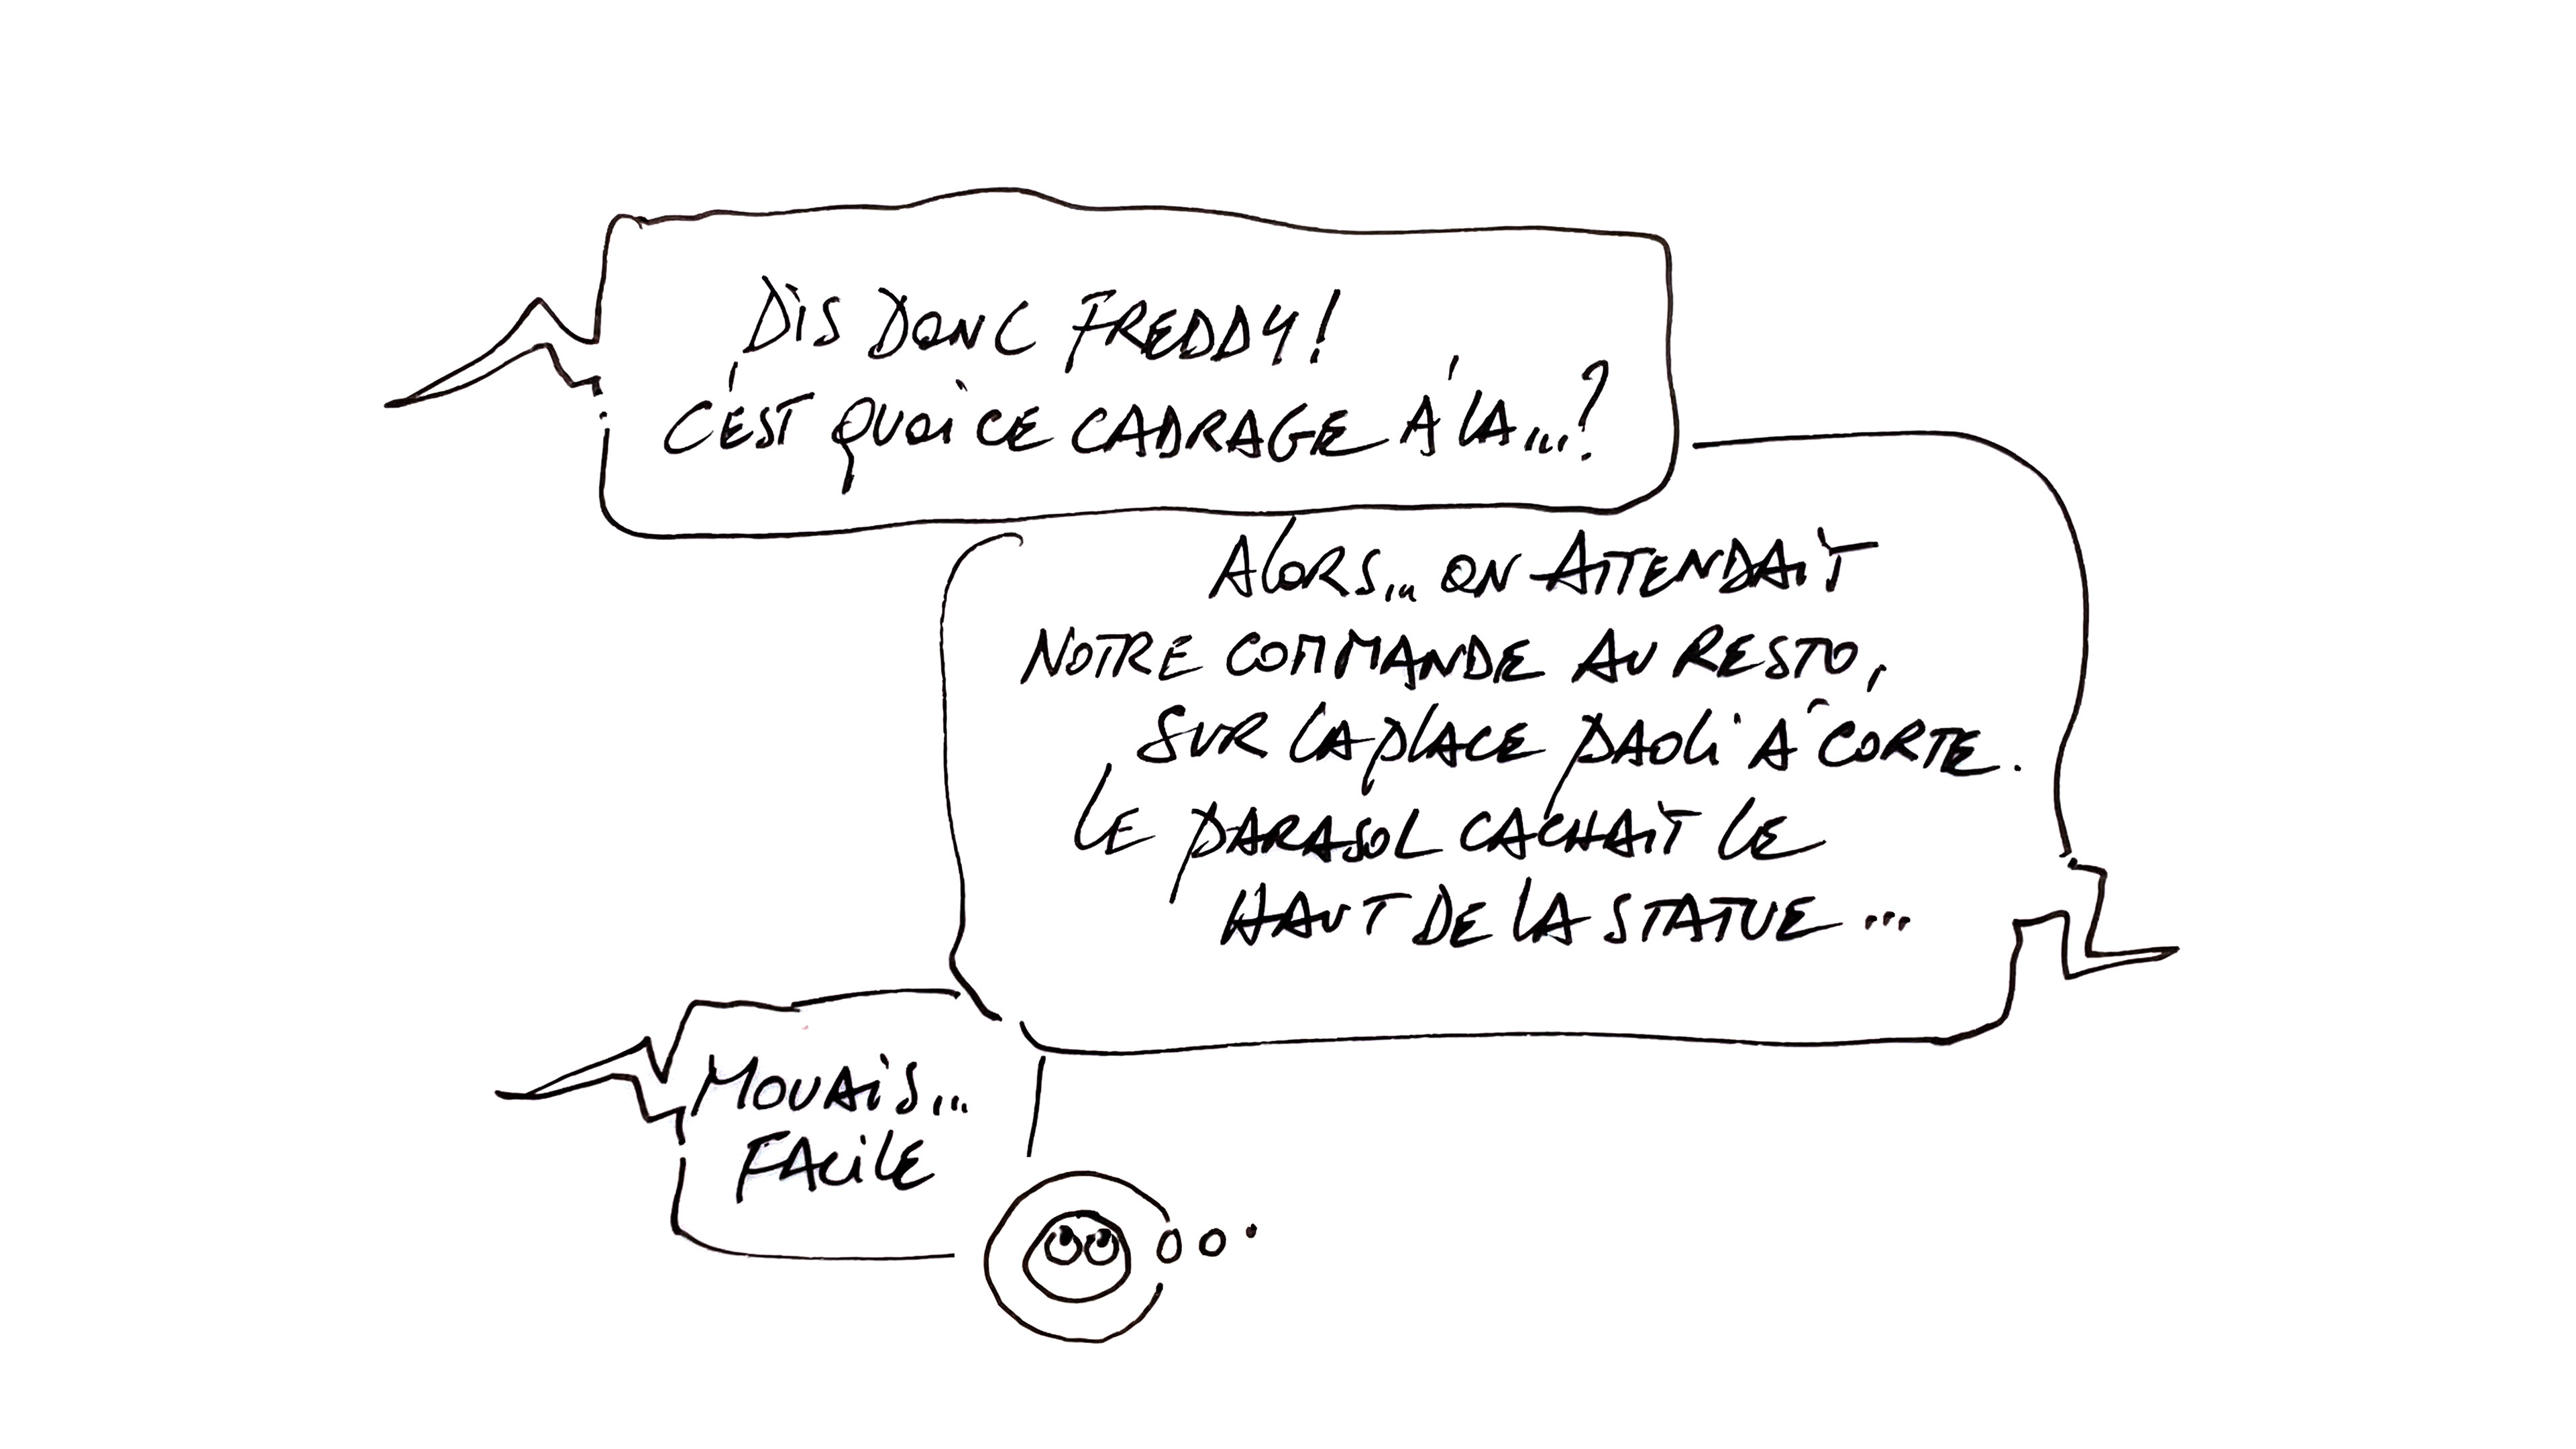 DIS DONC FREDDY!
C'EST QUOI CE CADRAGE À LA...?
ALORS... ON ATTENDAIT
NOTRE COMMANDE AU RESTO,
SUR LA PLACE PAOLI À CORTE.
LE PARASOL CACHAIT LE
HAUT DE LA STATUE...
MOUAIS...
FACILE